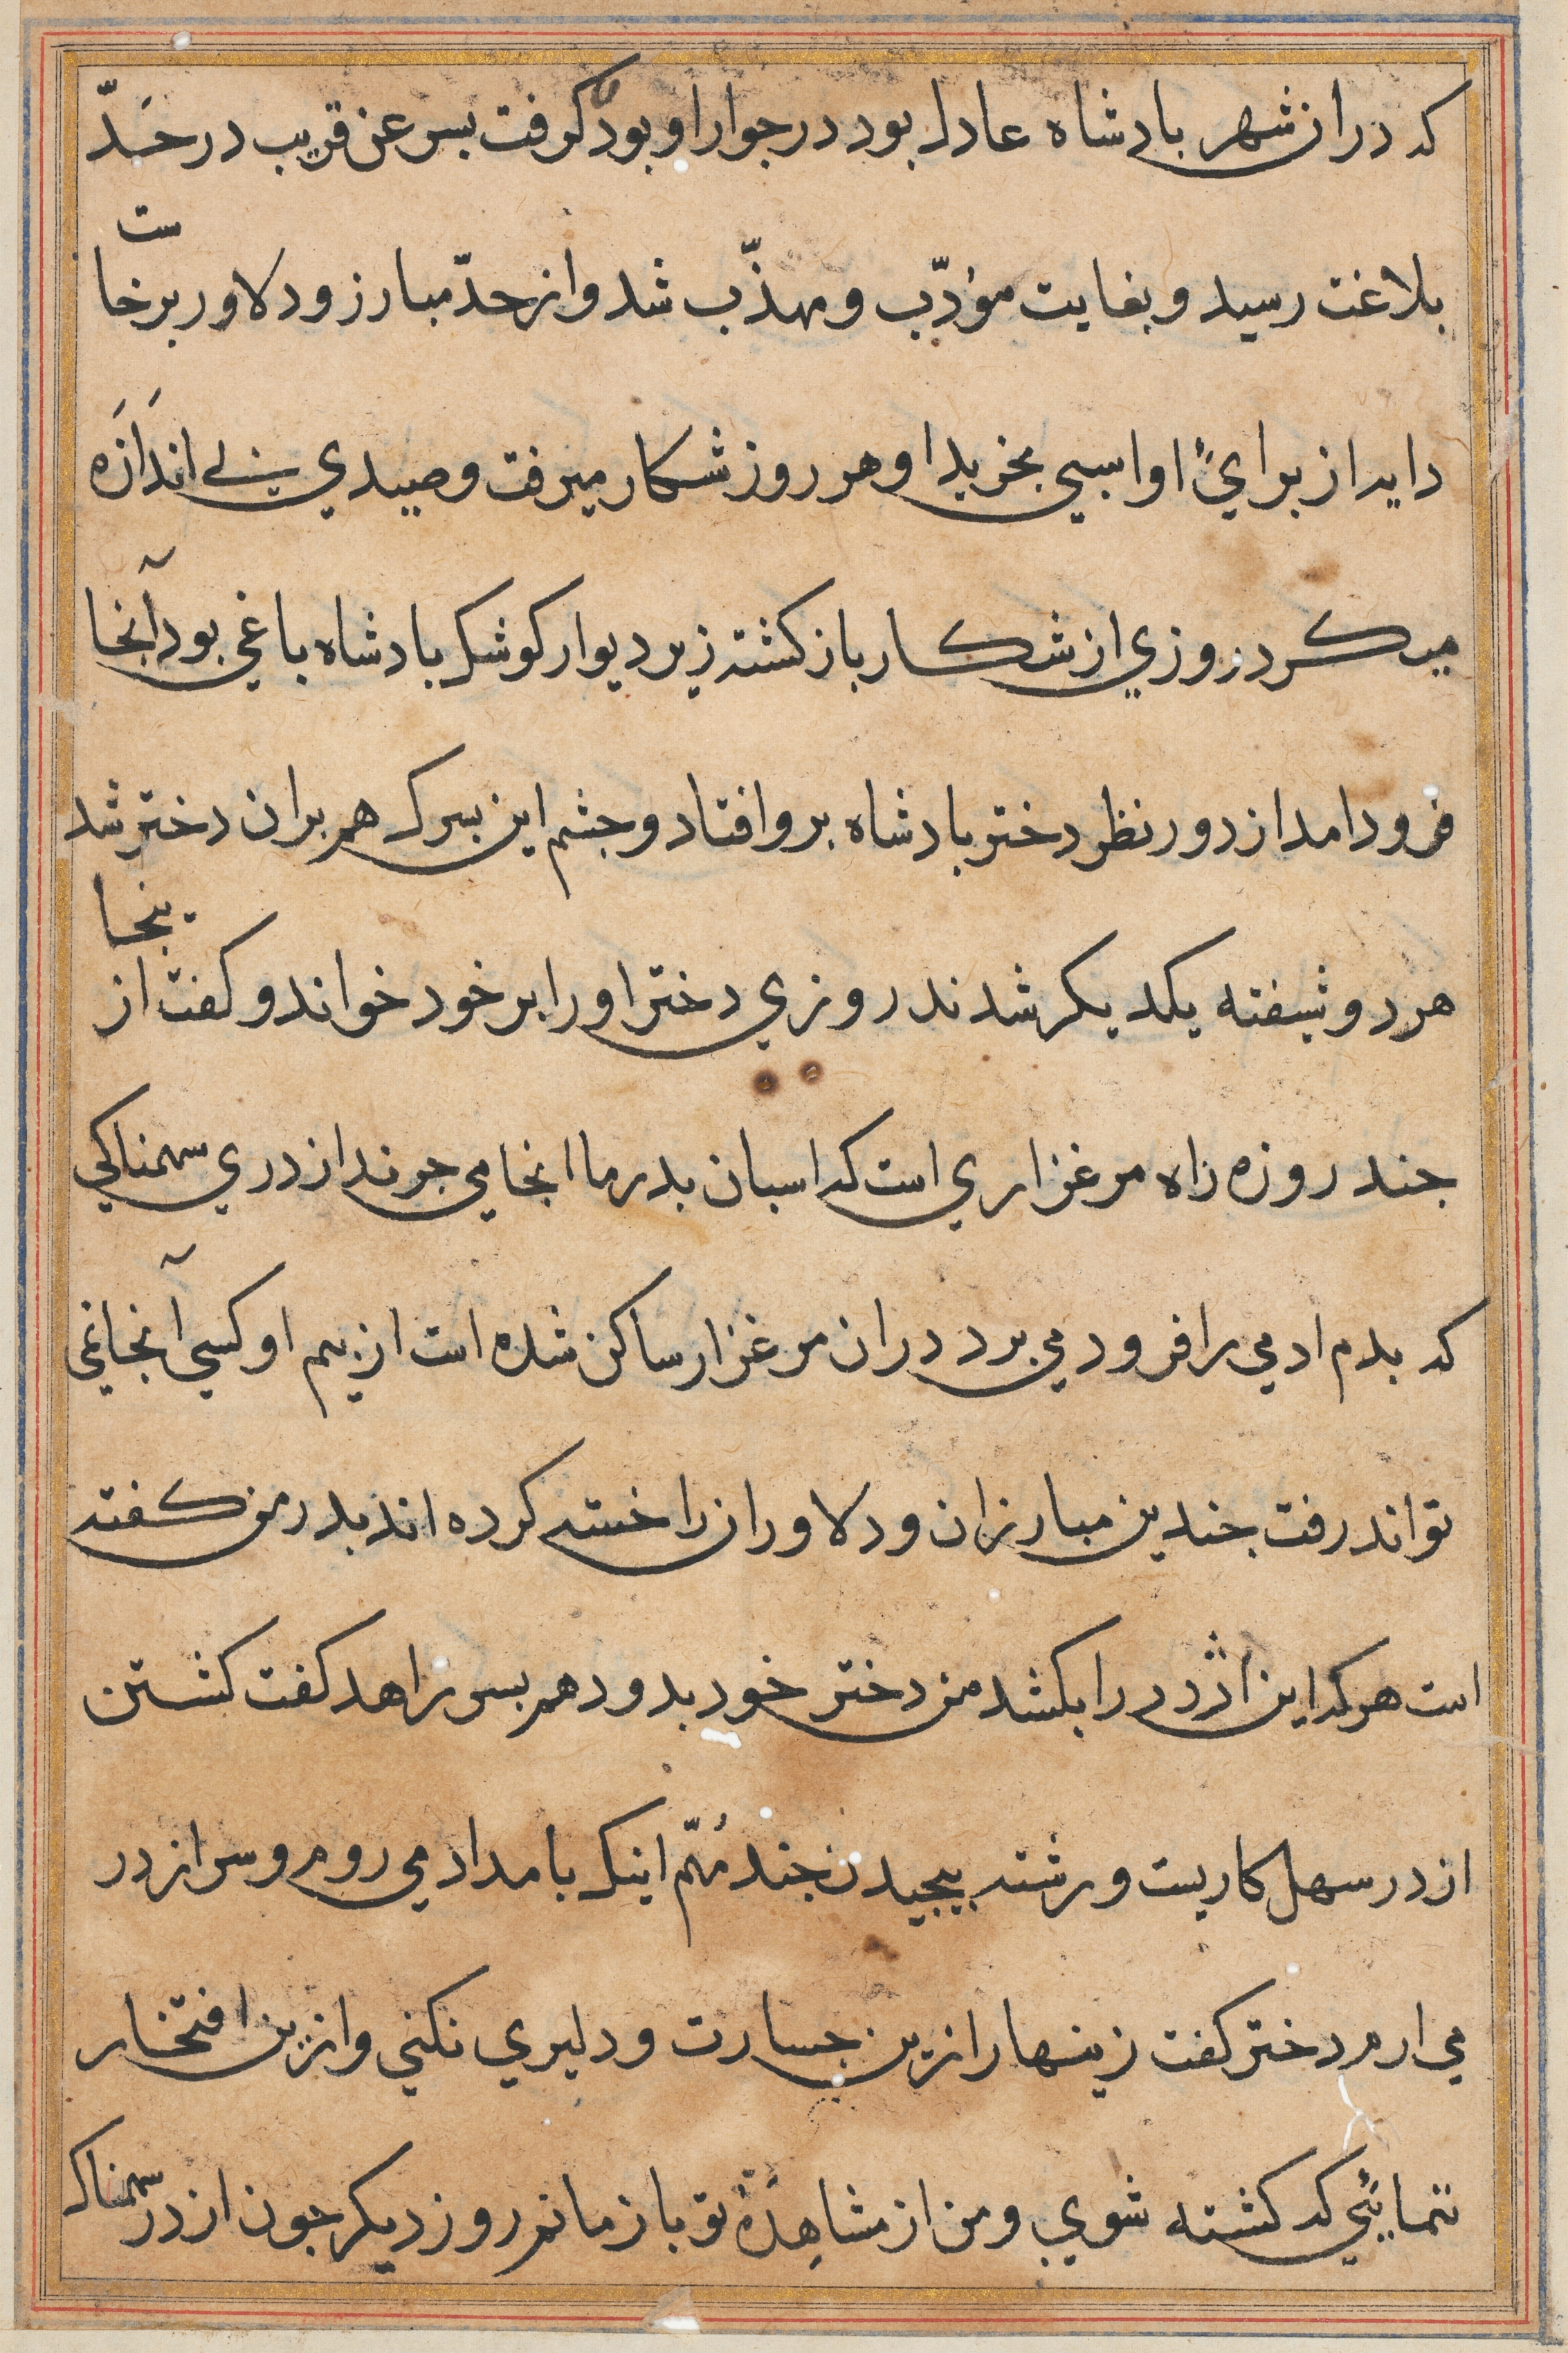 که دران شهر بادشاه عادل بود در جوار او بود کرفت بسر عن قریب در حدّ
بلاغت رسید و بغایت مؤدّب و مهذّب شد و از حدّ مبارز و دلاور برخاست
دایه از براي او اسبي بخرید او هر روز شکار میرفت و صیدي بے اندَازَه
میکرد روزي از شکار باز کشته زیر دیوار کوشک بادشاه باغي بود آنجا
فرود امد از دور نظر دختر بادشاه برو افتاد و جشم این بسرک هم بران دختر شد
هر دو شیفته یکدیکر شدند روزي دختر او را بر خود خواند و کفت از ینجا
جند روزه راه مرغزاري است که اسبان بدر ما انجا مي جرند اژدري سهمناکي
که بدم ادمي را فرود مي برد دران مرغزار ساکن شده است از بیم او کسي آنجا نمي
تواند رفت جندین مبارزان و دلاوران را خسته کرده اند بدر من کفته
است هر که این اژدر را بکشد من دختر خود بدو دهم بسر زاهد کفت کشتن
اژدر سهل کاریست و رشته بیجیدن جند مُهمّ اینک بامداد مي روم و سر اژدر
مي ارم دختر کفت زینهار ازین جسارت و دلیري نکني و ازین افتخار
ننمائي که کشته شوي و من از مشاهدهٔ تو باز مانم روز دیکر جون اژدر سهمناک